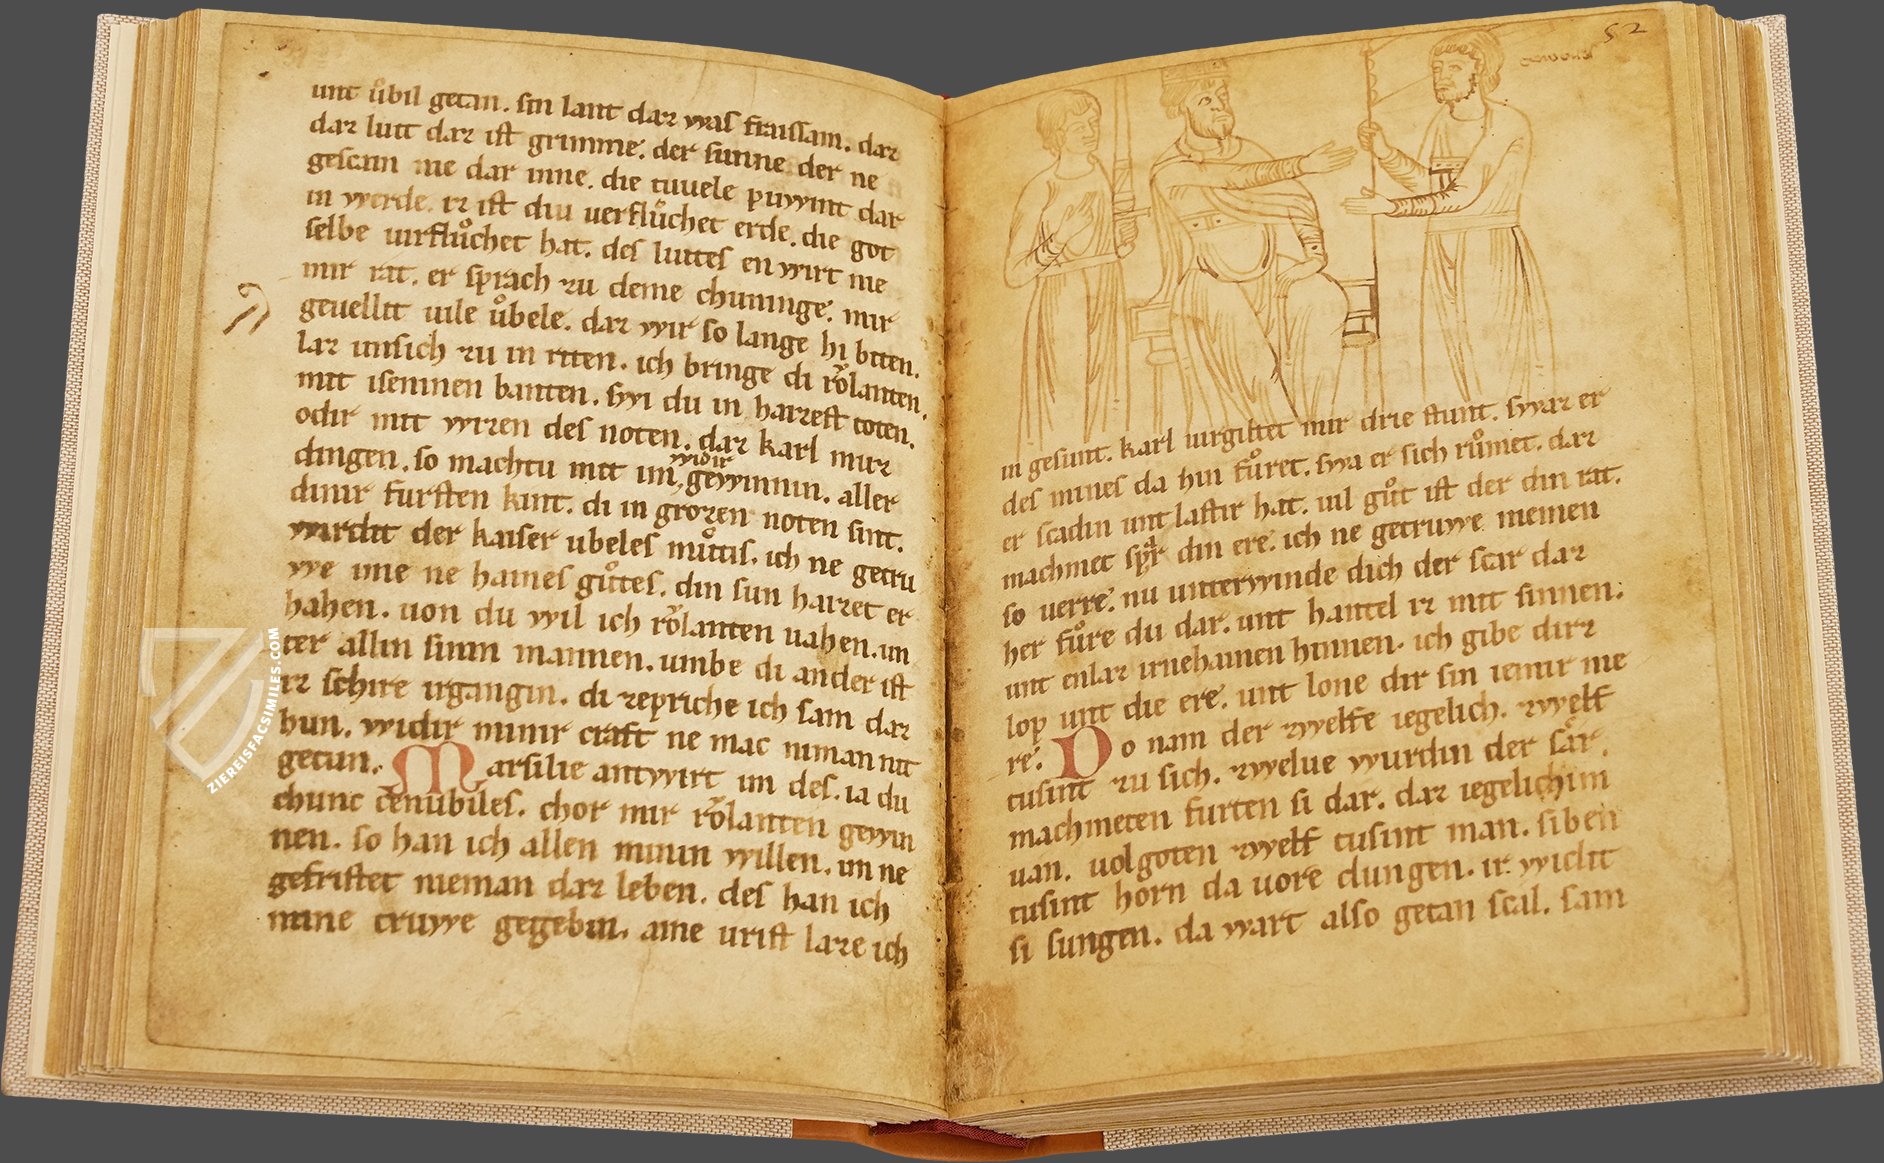 unt ůbil getan. sin lant daz was fraissam. daz
daz lutt daz ist grimme. der sunne der ne
gescain nie dar inne. die tuuele puwint dar
in werde. iz ist diu uerflůchet erde. die got
selbe uirflůchet hat. des luttes en wirt nie
mir rat. er sprach zu deme chuninge. mir
geuellit uile ůbele. daz wir so lange hi biten.
laz unsich zu in riten. ich bringe di rǒlanten
mit iseninen banten. swi du in hazzest toten.
odir mit wizen des noten. daz karl muz
dingen. so machtu mit im widir gewinnin. aller
dinir fursten kint. di in grozen noten sint.
wirdit der kaiser ubeles můtis. ich ne getru
we ime ne haines gůtes. din sun hazzet er
hahen. uon du wil ich rǒlanten uahen. un
ter allin sinin mannen. umbe di ander ist
iz schire irgangin. di zepriche ich sam daz
hun. widir minir craft ne mac niman nit
getun. Marsilie antwirt im des. ia du
chunc cenubiles. chor mir rǒlanten gewin
nen. so han ich allen minin willen. im ne
gefristet nieman daz leben. des han ich
mine truwe gegebin. aine urist laze ich
52
in gesunt. karl uirgiltet mir drie stunt. swaz er
des mines da hin fůret. swa er sich růmet. daz
er scadin unt lastir hat. uil gůt ist der din rat.
machmet din ere. ich ne getruwe meinen
so uerre. nu unterwinde dich der scar daz
her fůre du dar. unt hantel iz mit sinnen.
unt enlaz irnehainen hinnen. ich gibe dirz
lop unt die ere. unt lone dir sin iemir me
re. Do nam der zwelfe iegelich. zwelf
tusint zu sich. zwelue wurdin der scar.
machmeten furten si dar. daz iegelichim
uan. uolgoten zwelf tusint man. siben
tusint horn da uore clungen. ir wiclit
si sungen. da wart also getan scal. sam
ZIEREISFACSIMILES.COM